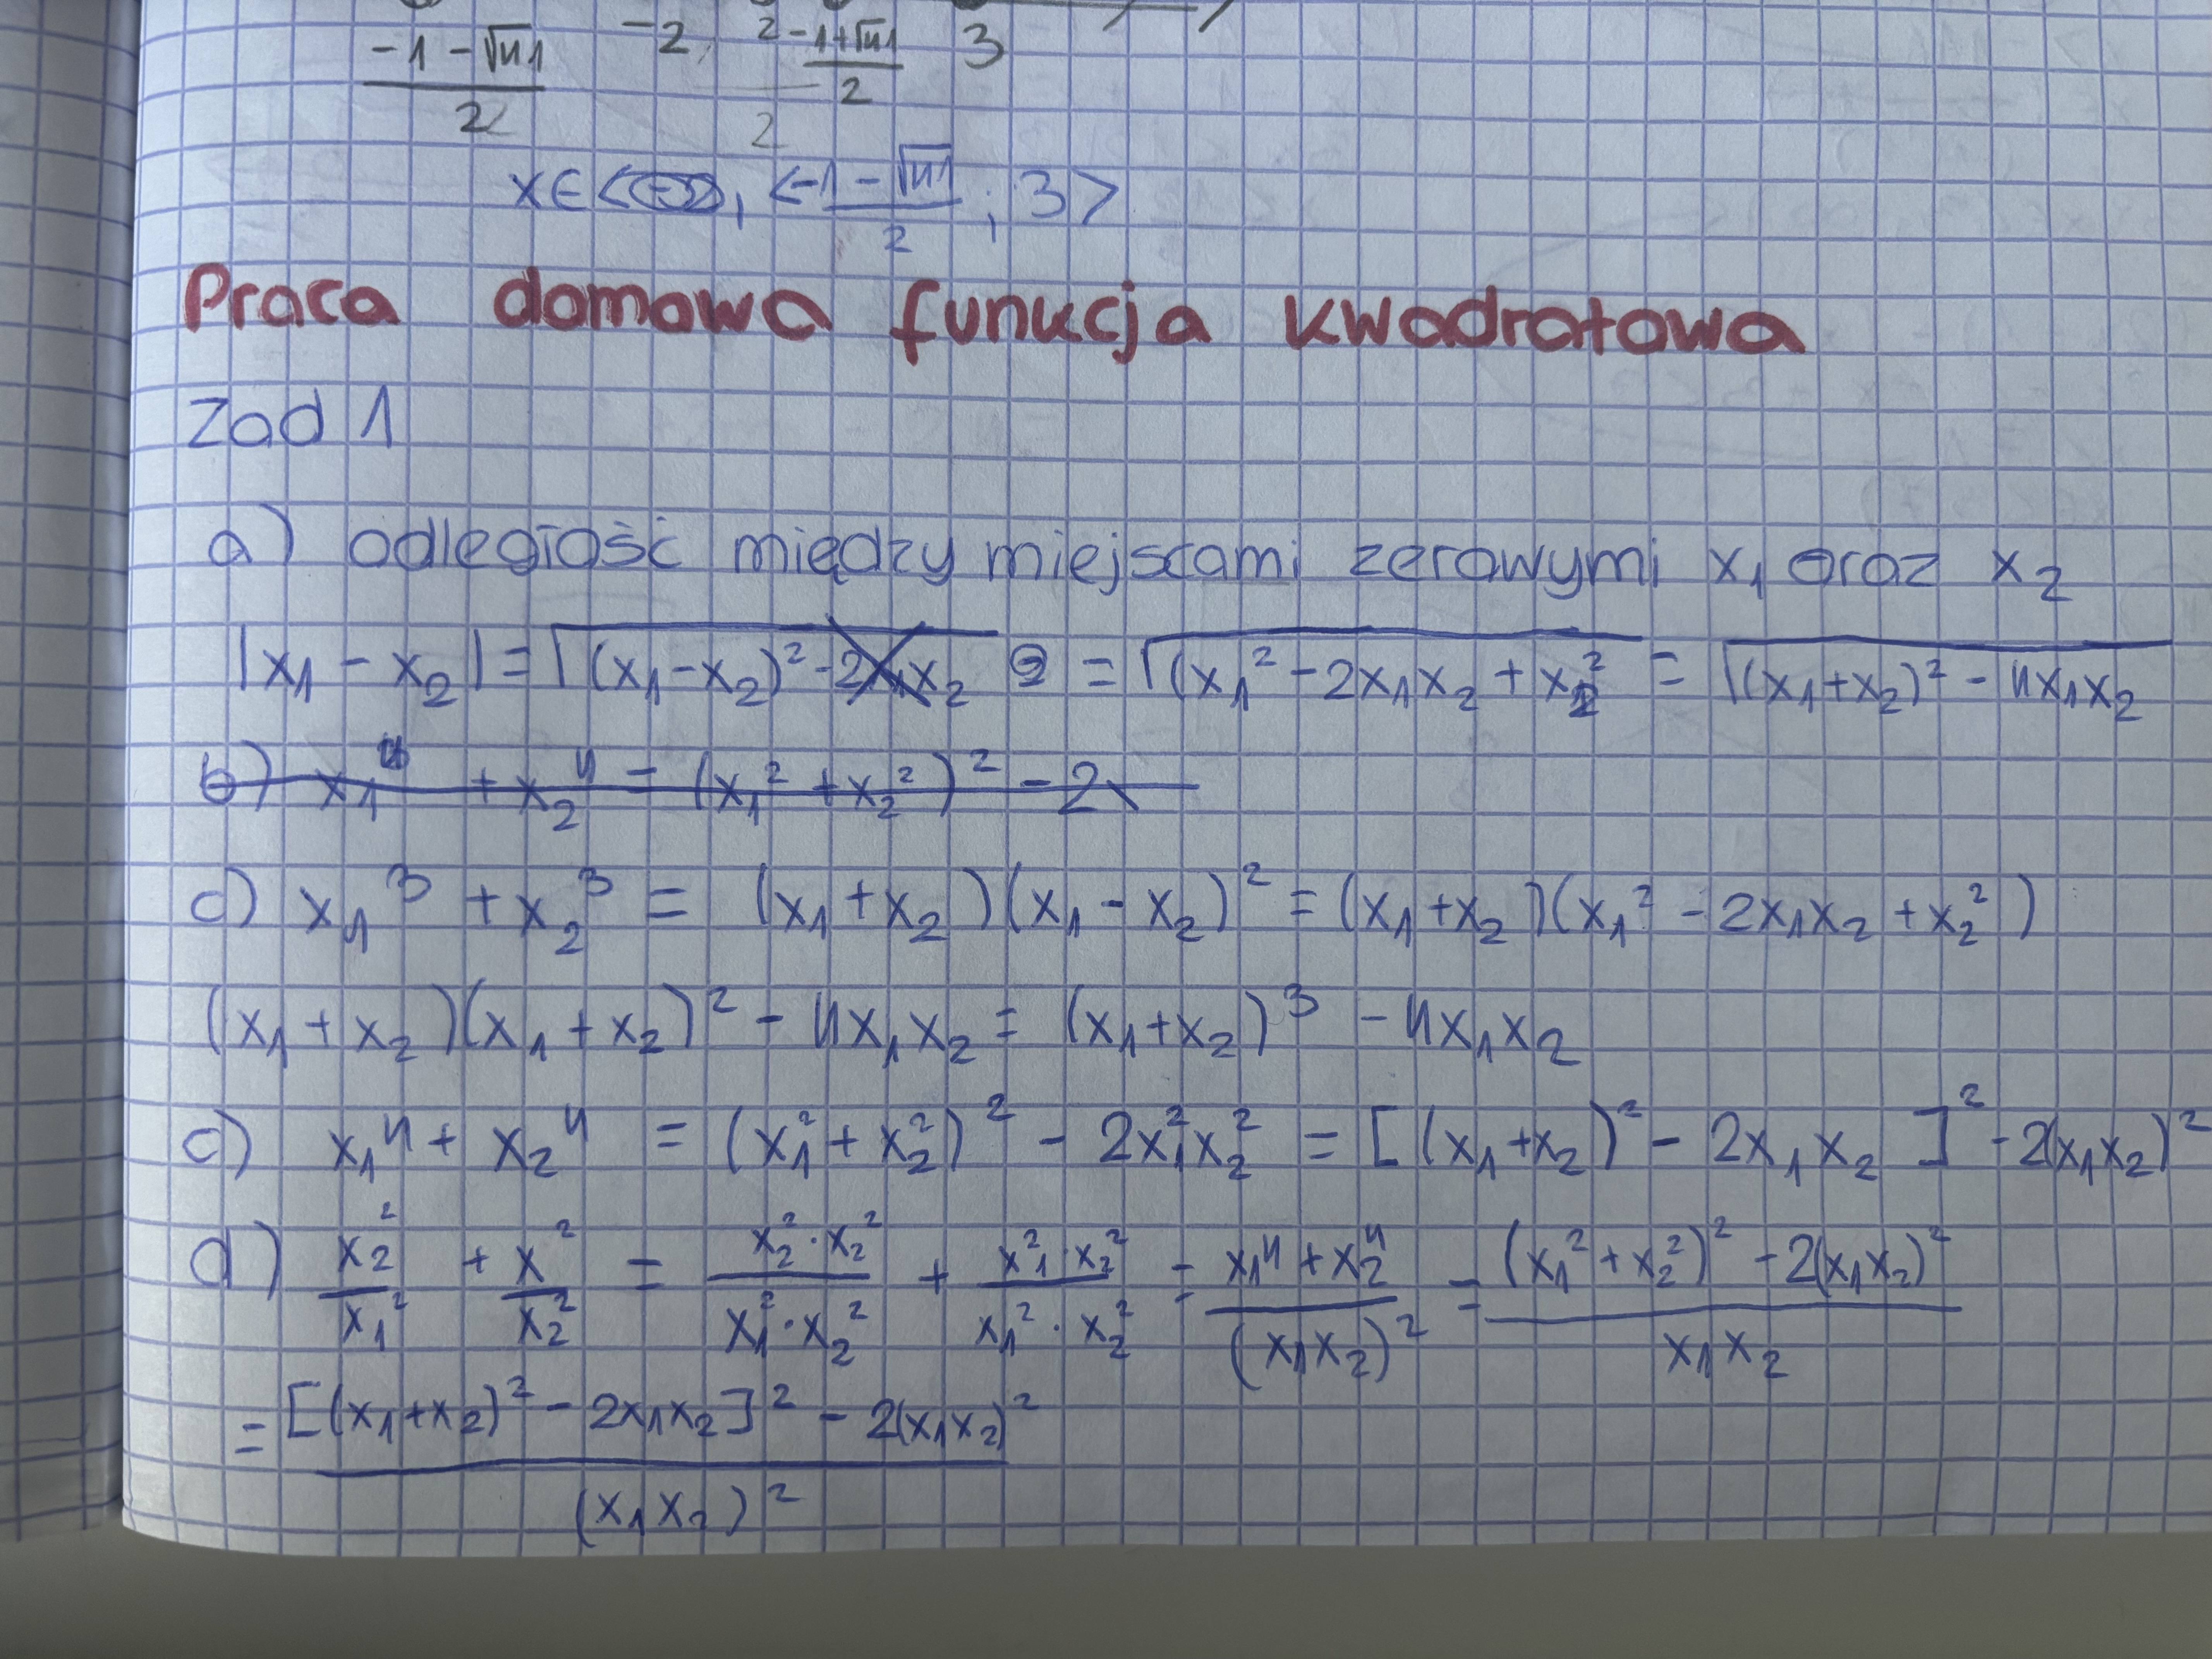 -1-√41/2 -2, 2 -1+√41/2 3
2
x∈< , <-1-√41/2 ; 3>
Praca domowa funkcja kwadratowa
Zad 1
a) odległość między miejscami zerowymi x₁ oraz x₂
|x₁ - x₂| = √(x₁-x₂)² -2x₁x₂ = √(x₁² -2x₁x₂ + x₂² = √(x₁+x₂)² - 4x₁x₂
b) x₁⁴ + x₂⁴ = (x₁² + x₂²)² - 2x
c) x₁³ + x₂³ = (x₁ + x₂)(x₁ - x₂)² = (x₁ + x₂)(x₁² - 2x₁x₂ + x₂²)
(x₁ + x₂)(x₁ + x₂)² - 4x₁x₂ = (x₁+x₂)³ - 4x₁x₂
c) x₁⁴ + x₂⁴ = (x₁² + x₂²)² - 2x₁²x₂² = [(x₁+x₂)² - 2x₁x₂]² - 2(x₁x₂)²
d) x₂²/x₁² + x²/x₂² = x₂²·x₂²/x₁²·x₂² + x₁²·x₂²/x₁²·x₂² = x₁⁴ + x₂⁴/(x₁x₂)² = (x₁² + x₂²)² - 2(x₁x₂)²/x₁x₂
= [(x₁+x₂)² - 2x₁x₂]² - 2(x₁x₂)²/(x₁x₂)²